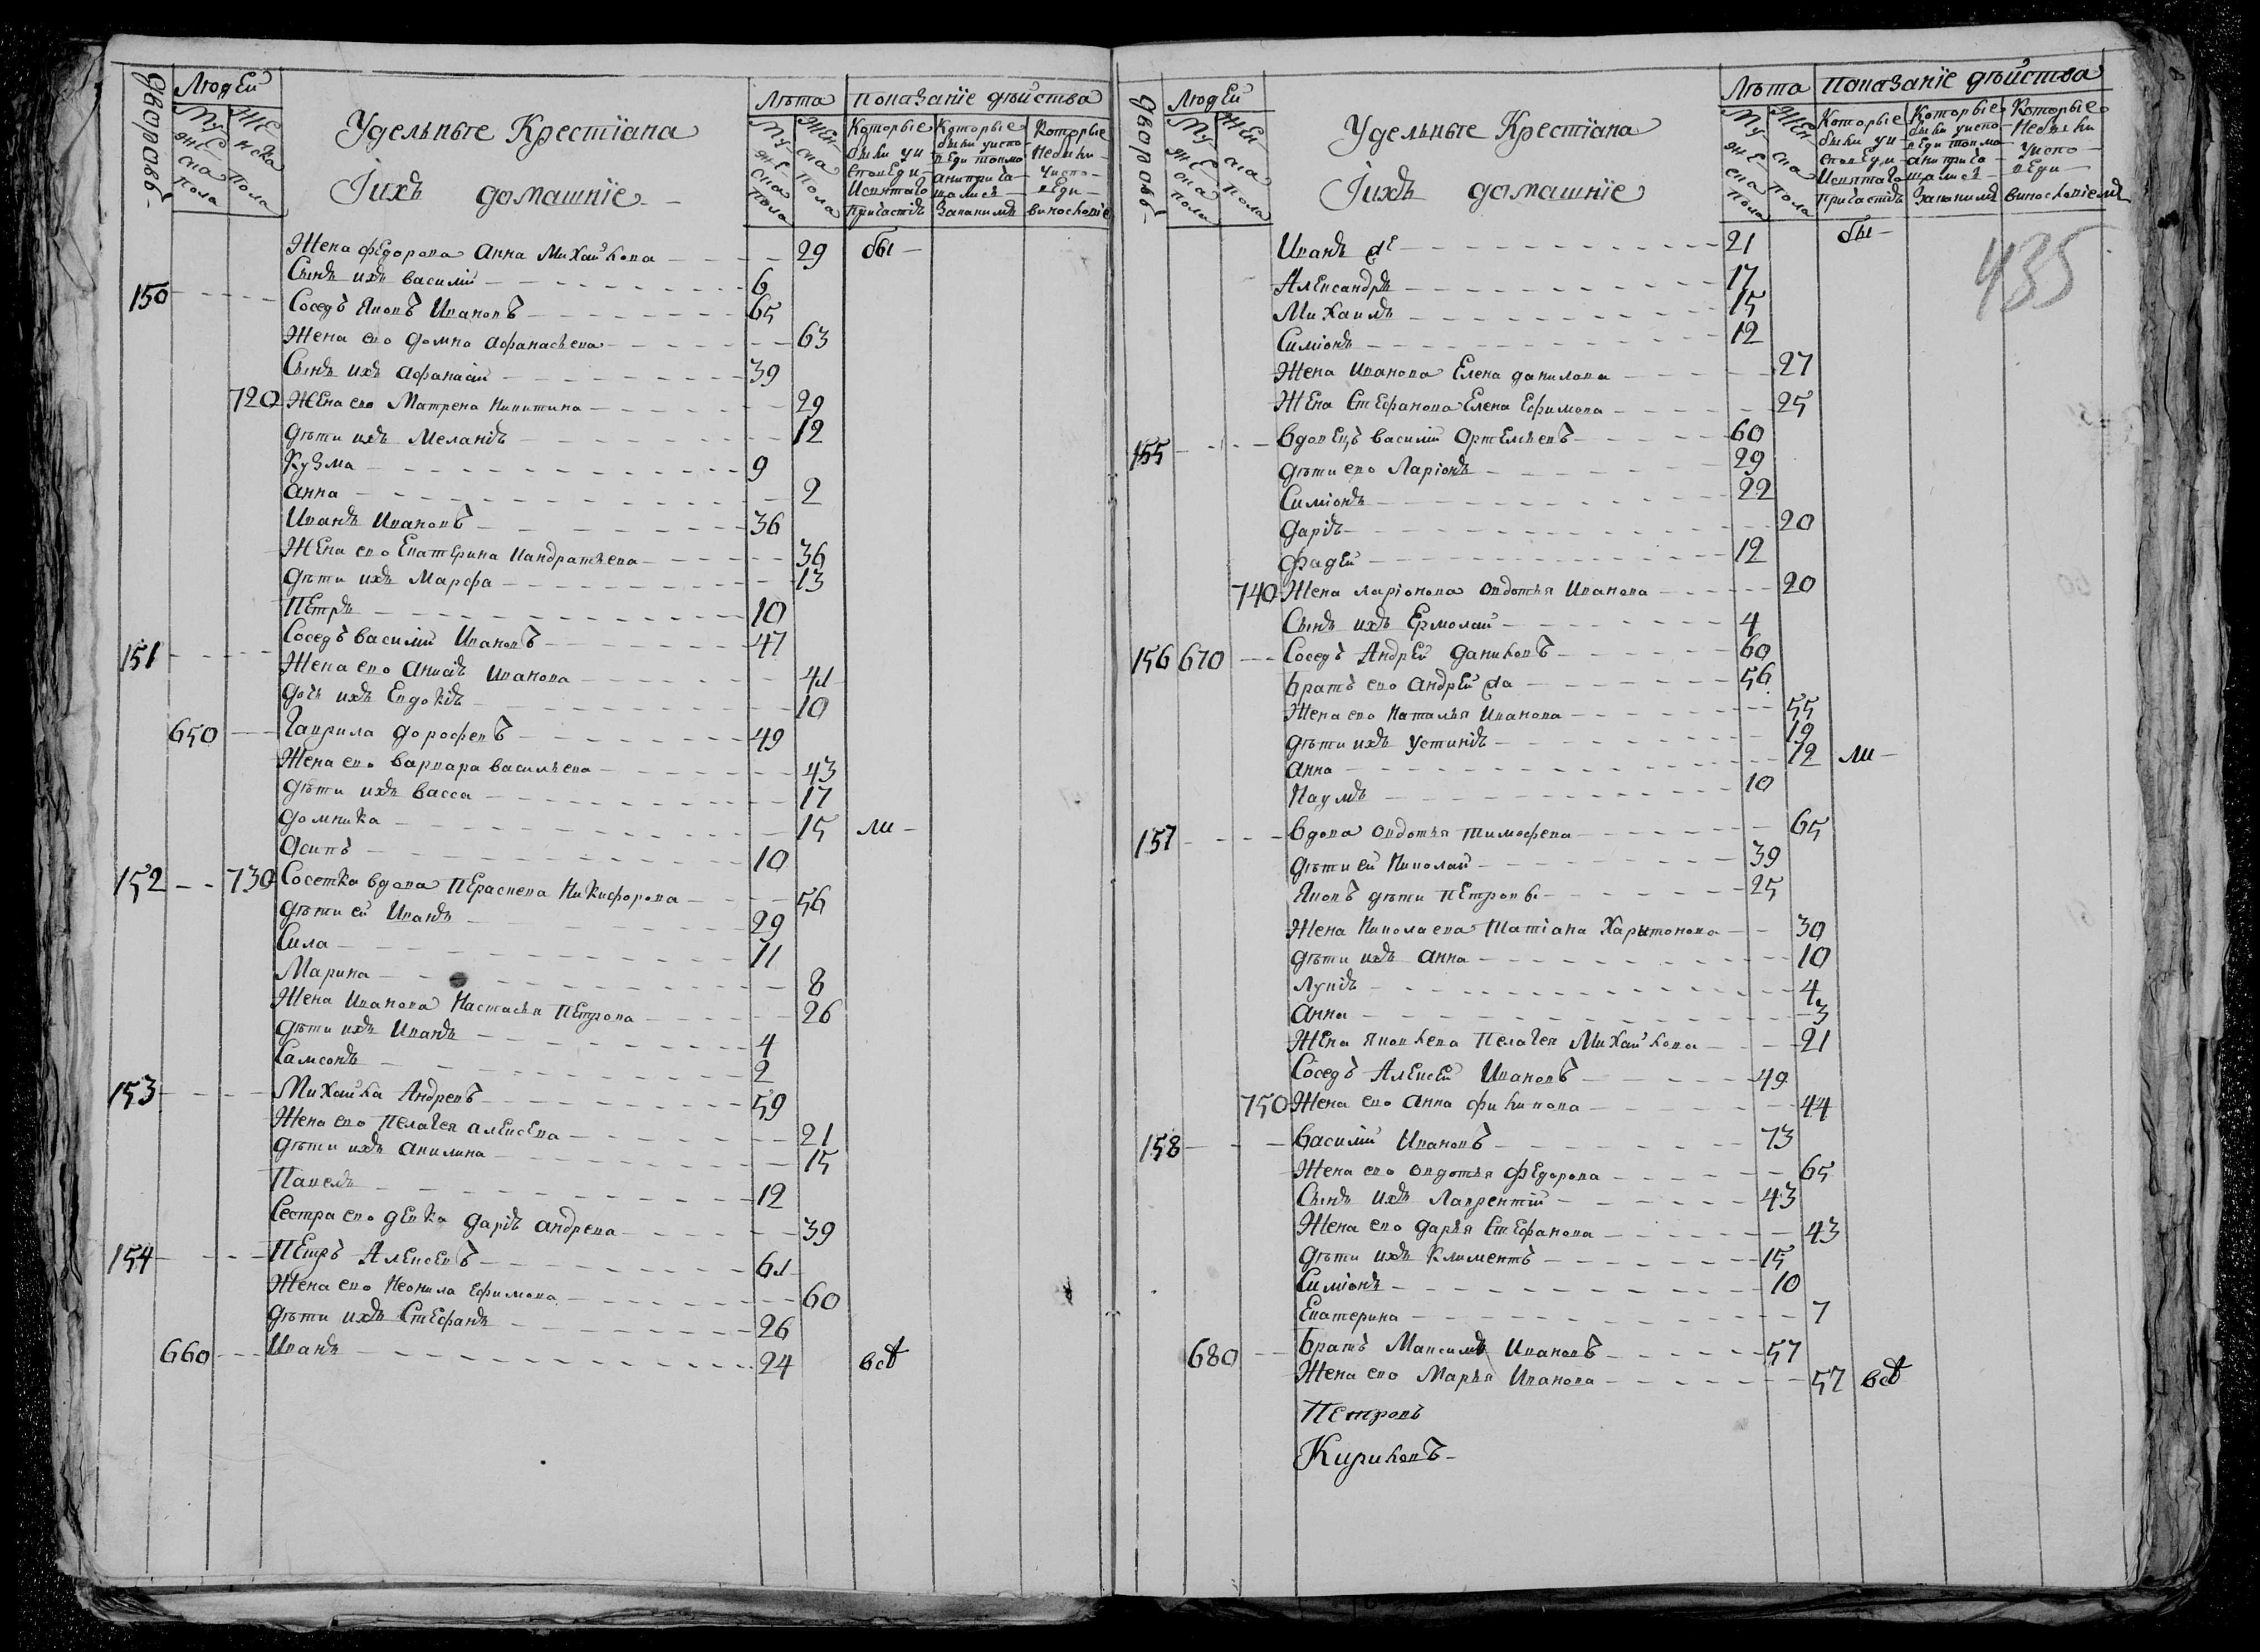 Дворовъ
Людей
Мужеска пола
Женска пола
Удельные Крестїана
Їихъ домашнїе
Лѣта
Мужеска пола
Женска пола
Показанїе дѣйства
Которые были у исповеди и святаго причастїя
Которые были у исповеди токмо а не причащались за каким винословїем
Которые не были у исповеди
Жена Федорова Анна Михайлова 29 бы
Сынъ ихъ Василий 6
150 Соседъ Яковъ Ивановъ 65
Жена его Домна Афанасьева 63
Сынъ ихъ Афанасий 39
720 Жена его Матрена Никитина 29
Дѣти ихъ Меланїя 12
Кузма 9
Анна 2
Иванъ Ивановъ 36
Жена его Екатерина Кандратьева 36
Дѣти ихъ Марфа 13
Петръ 10
151 Соседъ Василий Ивановъ 47
Жена его Анисья Иванова 41
Дочь ихъ Евдокїя 10
650 Гаврила Дорофеевъ 49
Жена его Варвара Васильева 43
Дѣти ихъ Васса 17
Домника 15 ли
Осипъ 10
152 730 Соседка вдова Пераскева Никифорова 56
Дѣти ей Иванъ 29
Сила 11
Марина 8
Жена Иванова Настасья Петрова 26
Дѣти ихъ Иванъ 4
Самсонъ 2
153 Михайла Андреевъ 59
Жена его Пелагея Алексеева 21
Дѣти ихъ Акилина 15
Павелъ 12
Сестра его девка Дарїя Андреева 39
154 Петръ Алексеевъ 61
Жена его Неонила Ефимова 60
Дѣти ихъ Стефанъ 26
660 Иванъ 24 всѣ
Дворовъ
Людей
Мужеска пола
Женска пола
Удельные Крестїана
Їихъ домашнїе
Лѣта
Мужеска пола
Женска пола
Показанїе дѣйства
Которые были у исповеди и святаго причастїя
Которые были у исповеди токмо а не причащались за каким винословїем
Которые не были у исповеди
435
Иванъ же 21 бы
Александръ 17
Михаилъ 15
Симїонъ 12
Жена Иванова Елена Данилова 27
Жена Стефанова Елена Ефимова 25
155 Вдовецъ Василий Ортемьевъ 60
Дѣти его Ларїонъ 29
Симїонъ 22
Дарїя 20
Фадей 12
740 Жена Ларїонова Овдотья Иванова 20
Сынъ ихъ Ермолай 4
156 670 Соседъ Андрей Даниловъ 60
Братъ его Андрей же 56
Жена его Наталья Иванова 55
Дѣти ихъ Устинїя 19
Анна 12 ли
Наумъ 10
157 Вдова Овдотья Тимофеева 65
Дѣти ей Николай 39
Яковъ дѣти Петровы 25
Жена Николаева Татїана Харитонова 30
Дѣти ихъ Анна 10
Лукїя 4
Анна 3
Жена Яковлева Пелагея Михайлова 21
Соседъ Алексей Ивановъ 49
750 Жена его Анна Филипова 44
158 Василий Ивановъ 73
Жена его Овдотья Федорова 65
Сынъ ихъ Лаврентий 43
Жена его Дарья Стефанова 43
Дѣти ихъ Климентъ 15
Симїонъ 10
Екатерина 7
680 Братъ Максимъ Ивановъ 57
Жена его Марья Иванова 57 всѣ
Петровъ
Кириловъ